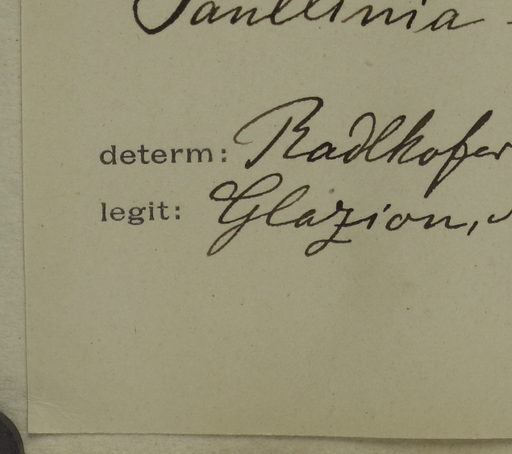 Paullinia
determ: Radlkofer
legit: Glazion,